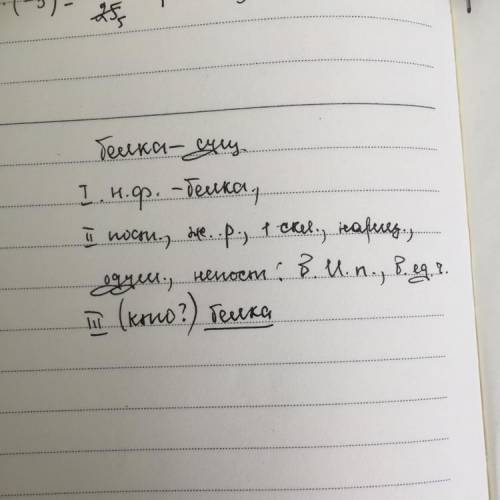 белка – сущ.
I. н.ф. – белка,
II пост., ж. р., 1 скл., нариц.,
одуш., непост: в И. п., в ед. ч.
III (кто?) белка